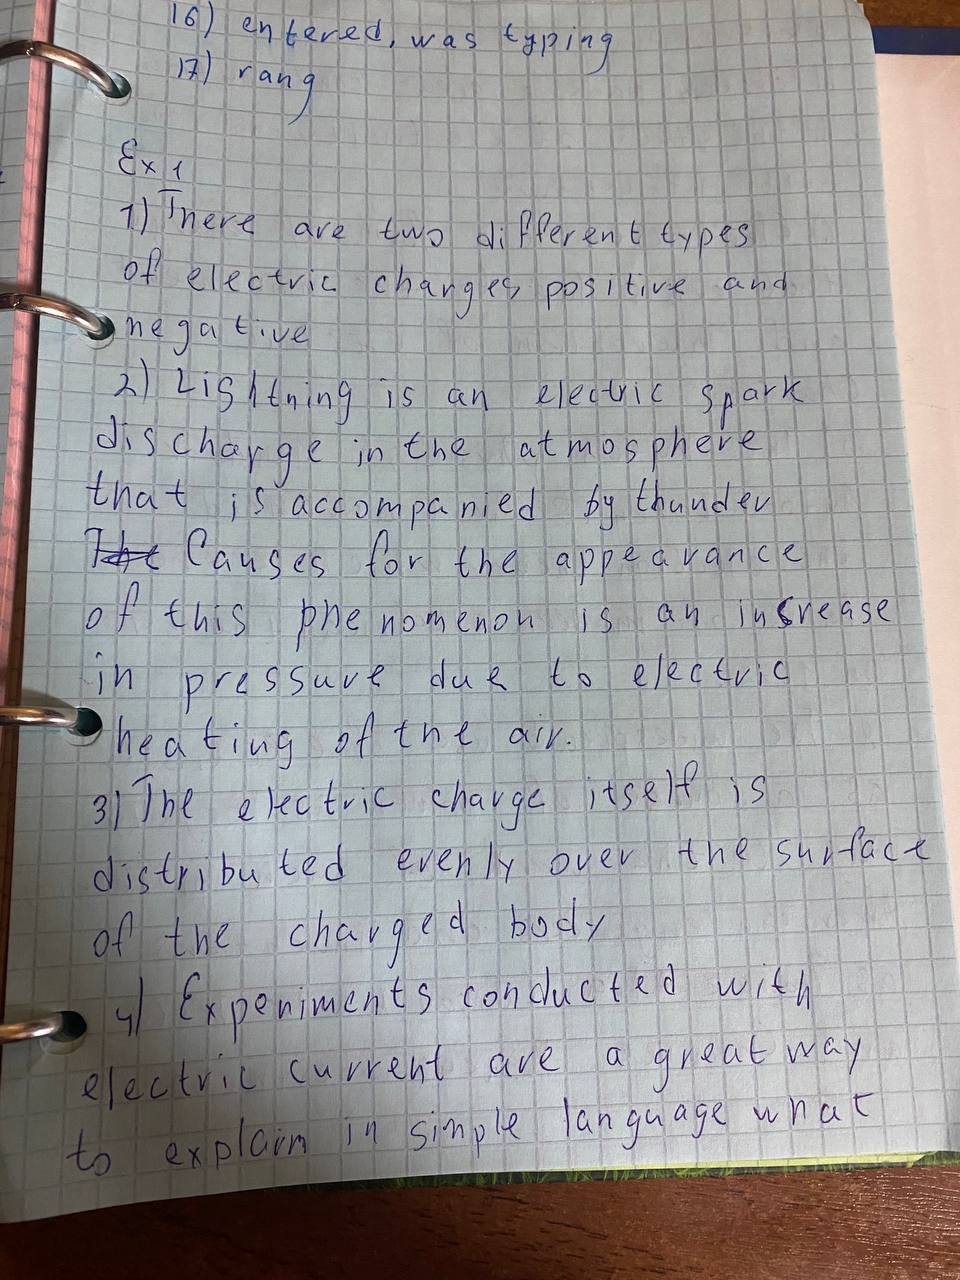 16) entered, was typing
17) rang
Ex 1
1) There are two different types
of electric charges positive and
negative
2) Lightning is an electric spark
discharge in the atmosphere
that is accompanied by thunder
The Causes for the appearance
of this phenomenon is an increase
in pressure due to electric
heating of the air.
3) The electric charge itself is
distributed evenly over the surface
of the charged body
4) Experiments conducted with
electric current are a great way
to explain in simple language what